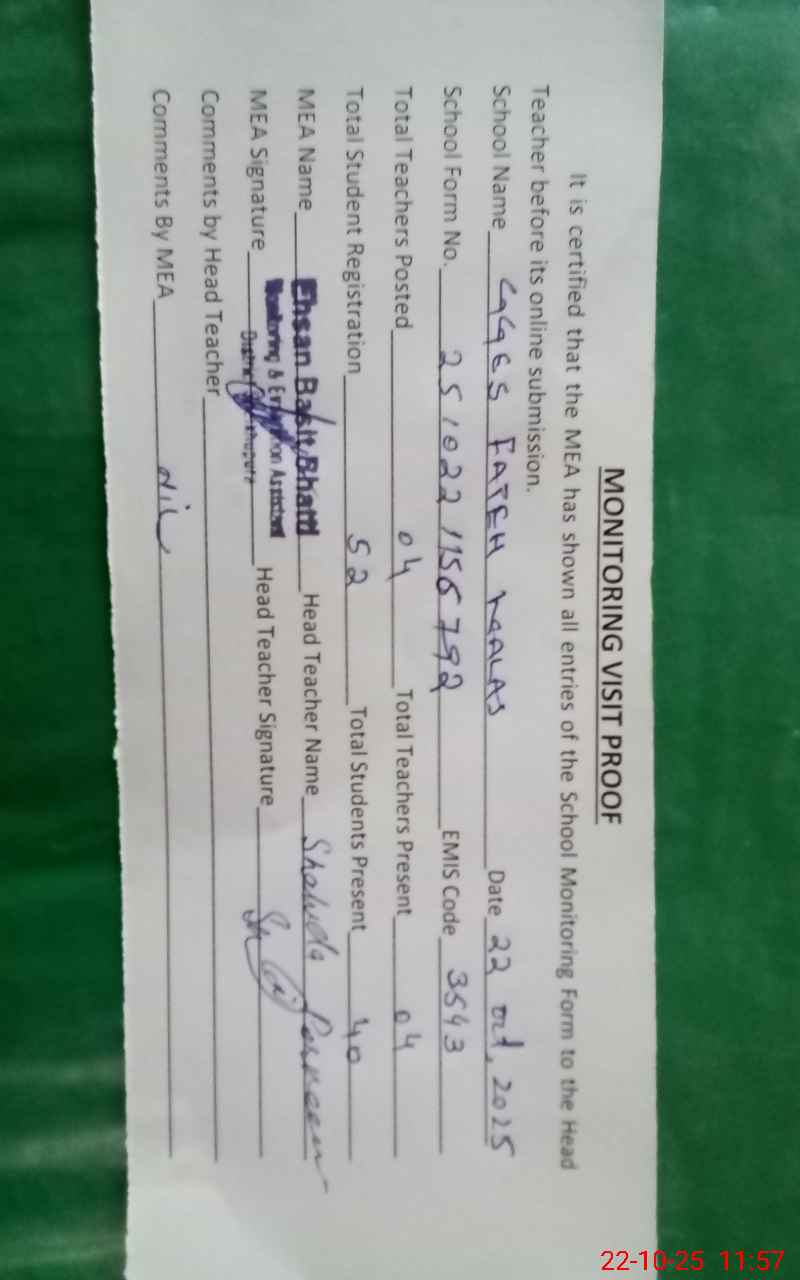 MONITORING VISIT PROOF
It is certified that the MEA has shown all entries of the School Monitoring Form to the Head
Teacher before its online submission.
School Name GGES FATEH Date 22 Oct, 2025
School Form No. 251022 1156792 EMIS Code 3543
Total Teachers Posted 04 Total Teachers Present 04
Total Student Registration 52 Total Students Present 40
MEA Name Ehsan Basit Bhatti Head Teacher Name Shahida Parveen
MEA Signature Monitoring & Evaluation Assistant Head Teacher Signature
District
Comments by Head Teacher
Comments By MEA Nil
22-10-25 11:57